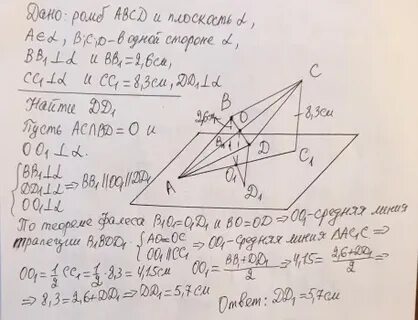 Дано: ромб ABCD и плоскость α,
A∈α, B;C;D-в одной стороне α,
BB₁⊥α и BB₁=2,6см,
CC₁⊥α и CC₁=8,3см, DD₁⊥α
Найти DD₁
Пусть AC∩BD=O и
OO₁⊥α.
{BB₁⊥α
DD₁⊥α ⇒ BB₁||OO₁||DD₁
OO₁⊥α
C
B
2,6
O
8,3см
B₁
D
C₁
A
O₁
D₁
По теореме фалеса B₁O₁=O₁D₁ и BO=OD ⇒ OO₁-средняя линия
трапеции B₁BDD₁. {AO=OC
OO₁||CC₁ ⇒ OO₁-средняя линия ΔAC₁C ⇒
OO₁=1/2 CC₁=1/2·8,3=4,15см OO₁=BB₁+DD₁/2 ⇒ 4,15=2,6+DD₁/2 ⇒
⇒ 8,3=2,6+DD₁ ⇒ DD₁=5,7см
Ответ: DD₁=5,7см